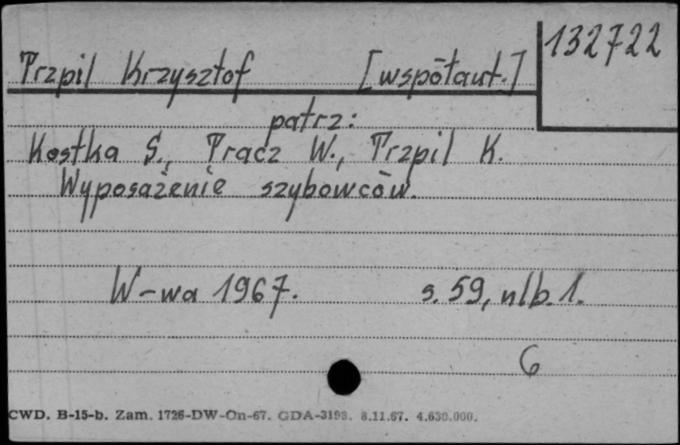 132722
Trzpil Krzysztof [współaut.]
patrz:
Kostka S., Tracz W., Trzpil K.
Wyposażenie szybowców.
W-wa 1967. s. 59, nlb. 1.
6
CWD. B-15-b. Zam. 1726-DW-On-67. GDA-3193. 8.11.67. 4.630.000.